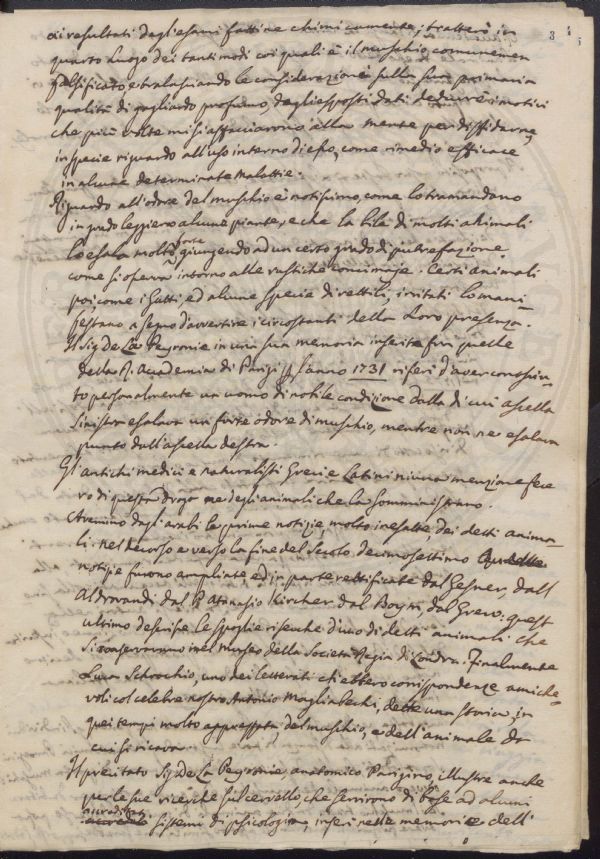 ai resultati degli esami fattine chimicamente; tratterò in
quarto luogo dei tanti modi coi quali è il muschio comunemen
falsificato, e tralasciando le considerazioni sulla sua primaria
qualità di gagliardo profumo, dagli esposti dati dedurrò i motivi
che più volte mi si affacciarono alla mente per diffidarne,
in specie riguardo all'uso interno di esso, come rimedio efficace
in alcune determinate malattie.
Riguardo all'odore del muschio è notissimo, come lo tramandano
in grado leggiero alcune piante, e che la bile di molti animali
lo esala molto forte giungendo ad un certo grado di putrefazione
come si osserva intorno alle rustiche concimaje. Certi animali
poi, come i Gatti, ed alcune specie di rettili, irritati lo mani=
festano a segno d'avvertire i circostanti della loro presenza.
Il Sig. De La Peyronie in una sua memoria inserita fra quelle
della R. Accademia di Parigi l'anno 1731 riferì d'aver conosciu=
to personalmente un uomo di nobile condizione dalla di cui ascella
sinistra esalava un forte odore di muschio, mentre non ne esalava
punto dall'ascella destra.
Gli antichi medici e naturalisti Greci e Latini niuna menzione fece
ro di questa droga ne degli animali che la somministrano.
Avemmo dagli arabi le prime notizie, molto inesatte, dei detti anima=
li. nel decorso e verso la fine del Secolo decimosettimo
notizie furono ampliate, ed in parte rettificate dal Gesner, dall
Aldrovandi dal P. Atanasio Kircher dal Boym, dal Grew. quest
ultimo descrisse le spoglie risecche d'uno di detti animali che
si conservarono nel Museo della Società Regia di Londra. Finalmente
Luca Schrockio, uno dei letterati ch'ebbero corrispondenze amiche=
voli col celebre nostro Antonio Magliabechi, dette una storia, in
quei tempi molto apprezzata, del muschio, e dell'animale da
cui si ricava.
Il precitato Sig. De La Peyronie, anatomico Parigino, illustre anche
per le sue ricerche sul cervello, che servirono di base ad alcuni
accreditati sistemi di psicologia, inserì nelle memorie dell'